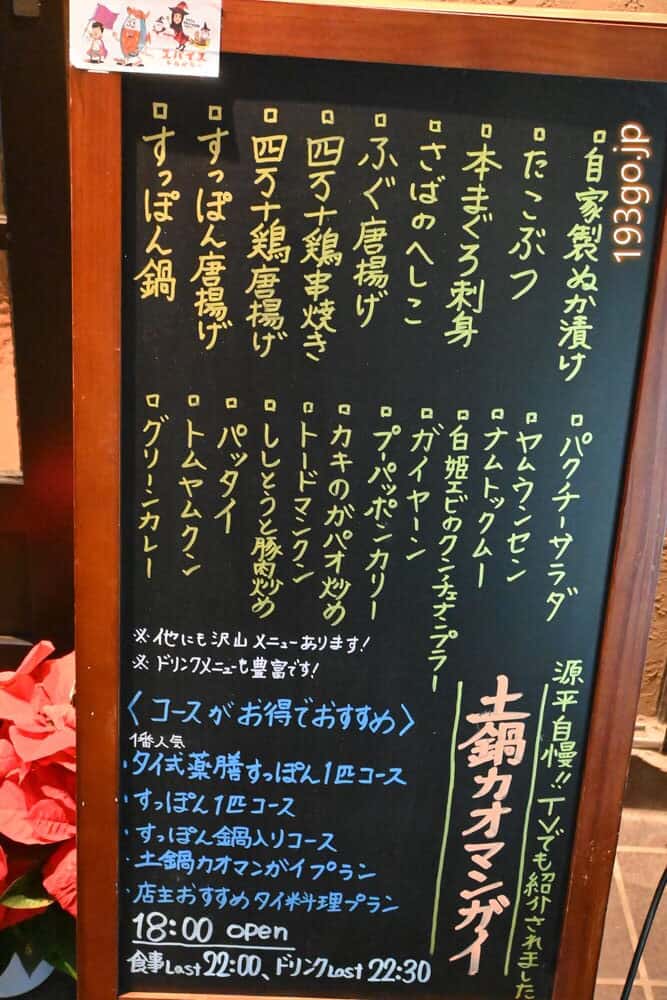 スパイス
193go.jp
□自家製ぬか漬け
□たこぶつ
□本まぐろ刺身
□さばのへしこ
□ふぐ唐揚げ
□四万十鶏串焼き
□四万十鶏唐揚げ
□すっぽん唐揚げ
□すっぽん鍋
□パクチーサラダ
□ヤムウンセン
□ナムトックムー
□白姫エビのクンチェナンプラー
□ガイヤーン
□プーパッポンカリー
□カキのガパオ炒め
□トードマンクン
□ししとうと豚肉炒め
□パッタイ
□トムヤムクン
□グリーンカレー
※他にも沢山メニューあります!
※ドリンクメニューも豊富です!
源平自慢!!TVでも紹介されました
土鍋カオマンガイ
〈コースがお得でおすすめ〉
1番人気
・タイ式薬膳すっぽん1匹コース
・すっぽん1匹コース
・すっぽん鍋入りコース
・土鍋カオマンガイプラン
・店主おすすめタイ料理プラン
18:00 open
食事Last 22:00、ドリンクLast 22:30